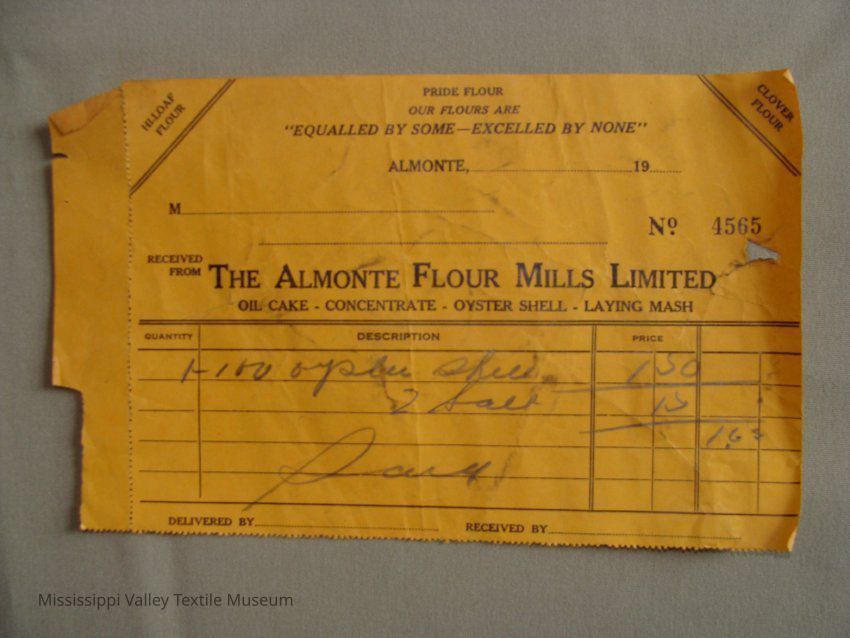 HLLOAF
FLOUR
PRIDE FLOUR
OUR FLOURS ARE
"EQUALLED BY SOME—EXCELLED BY NONE"
CLOVER
FLOUR
ALMONTE, 19
M
Nº 4565
RECEIVED
FROM THE ALMONTE FLOUR MILLS LIMITED
OIL CAKE - CONCENTRATE - OYSTER SHELL - LAYING MASH
QUANTITY DESCRIPTION PRICE
1-100 oyster shell 1 50
2 salt 15
1.65
DELIVERED BY RECEIVED BY
Mississippi Valley Textile Museum